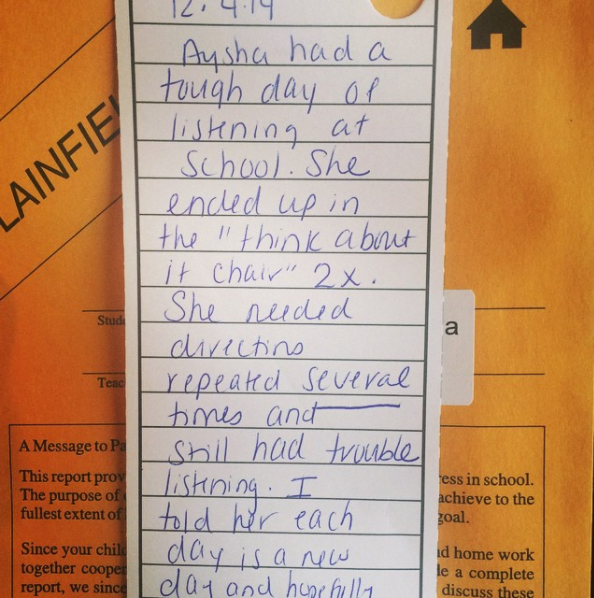 12.4.14
Aysha had a
tough day of
listening at
school. She
ended up in
the "think about
it chair" 2x.
She needed
directins
repeated several
times and
still had trouble
listening. I
told her each
day is a new
day and hopefully
LAINFIE
Stude
a
Teac
A Message to Pa
This report prov
ess in school.
The purpose of
achieve to the
fullest extent of
goal.
Since your chil
nd home work
together cooper
le a complete
report, we since
discuss these